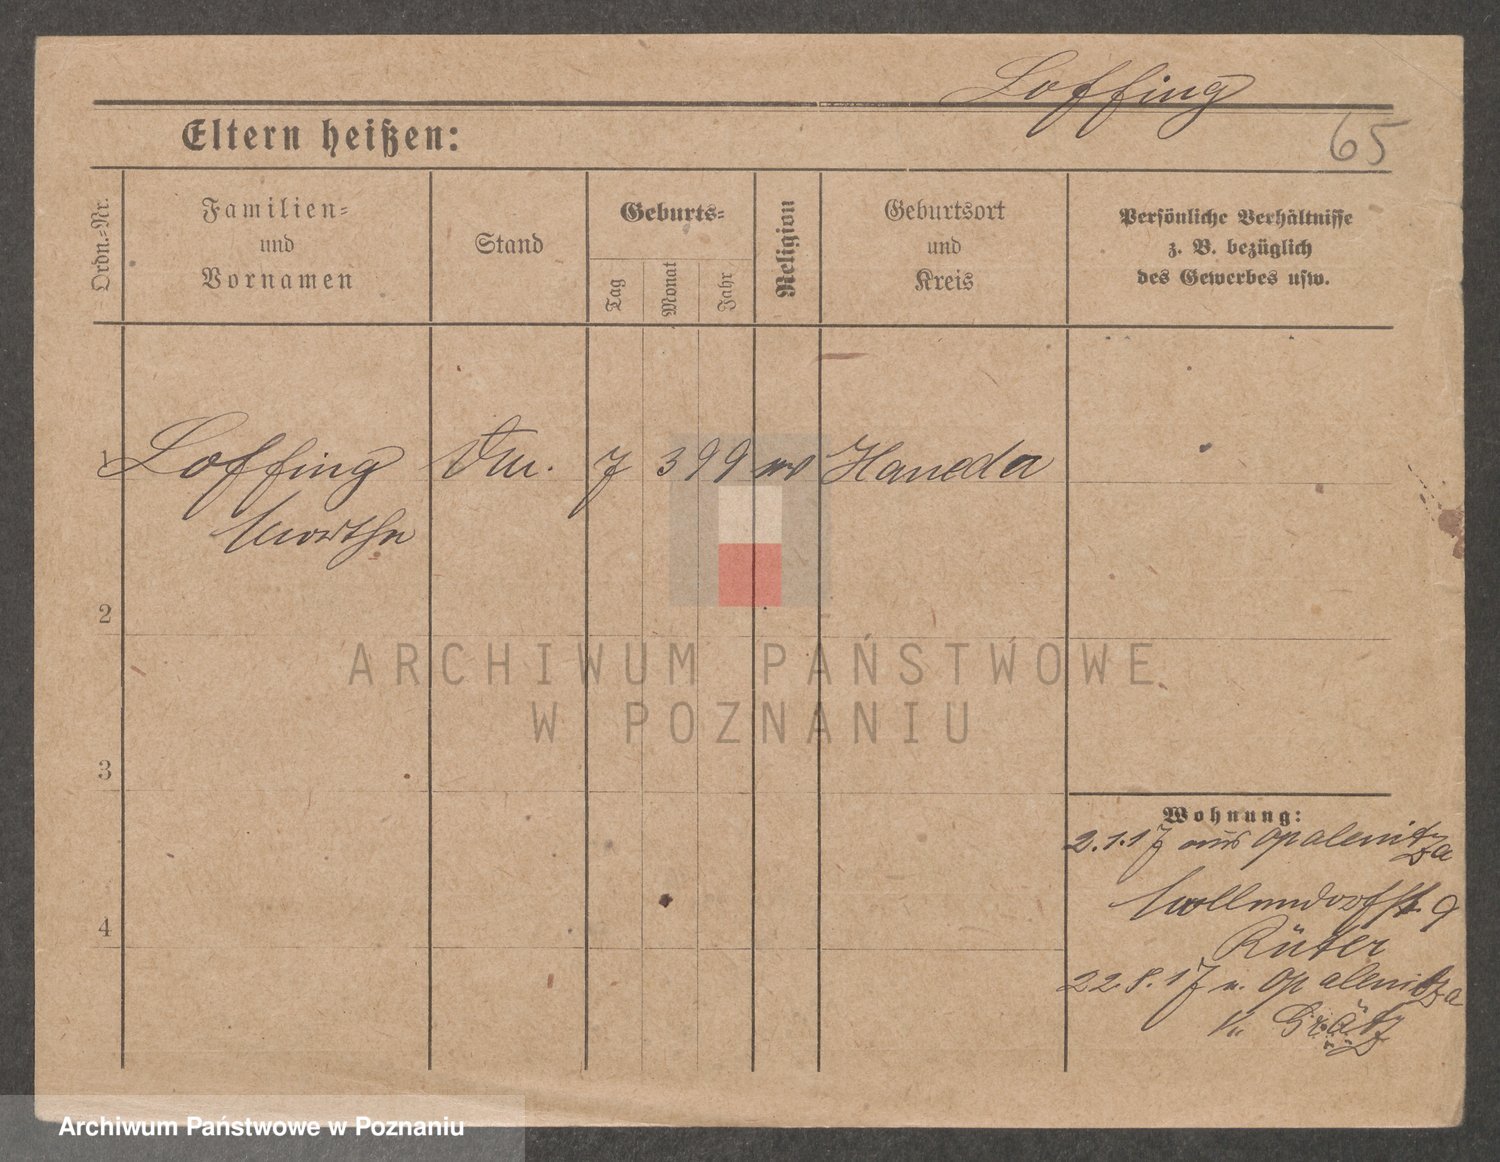 Loffing
Eltern heißen:
65
Ordn.=Nr.
Familien=
und
Vornamen
Stand
Geburts=
Tag
Monat
Jahr
Religion
Geburtsort
und
Kreis
Persönliche Verhältnisse
z. B. bezüglich
des Gewerbes usw.
1 Loffing 7 3 99 Haneda
Martha
2
3
4
Wohnung:
2.1.17 aus Opalenitza
9
Rüter
22.8.17 n. Opalenitza
Kr. Grätz
ARCHIWUM PAŃSTWOWE
W POZNANIU
Archiwum Państwowe w Poznaniu